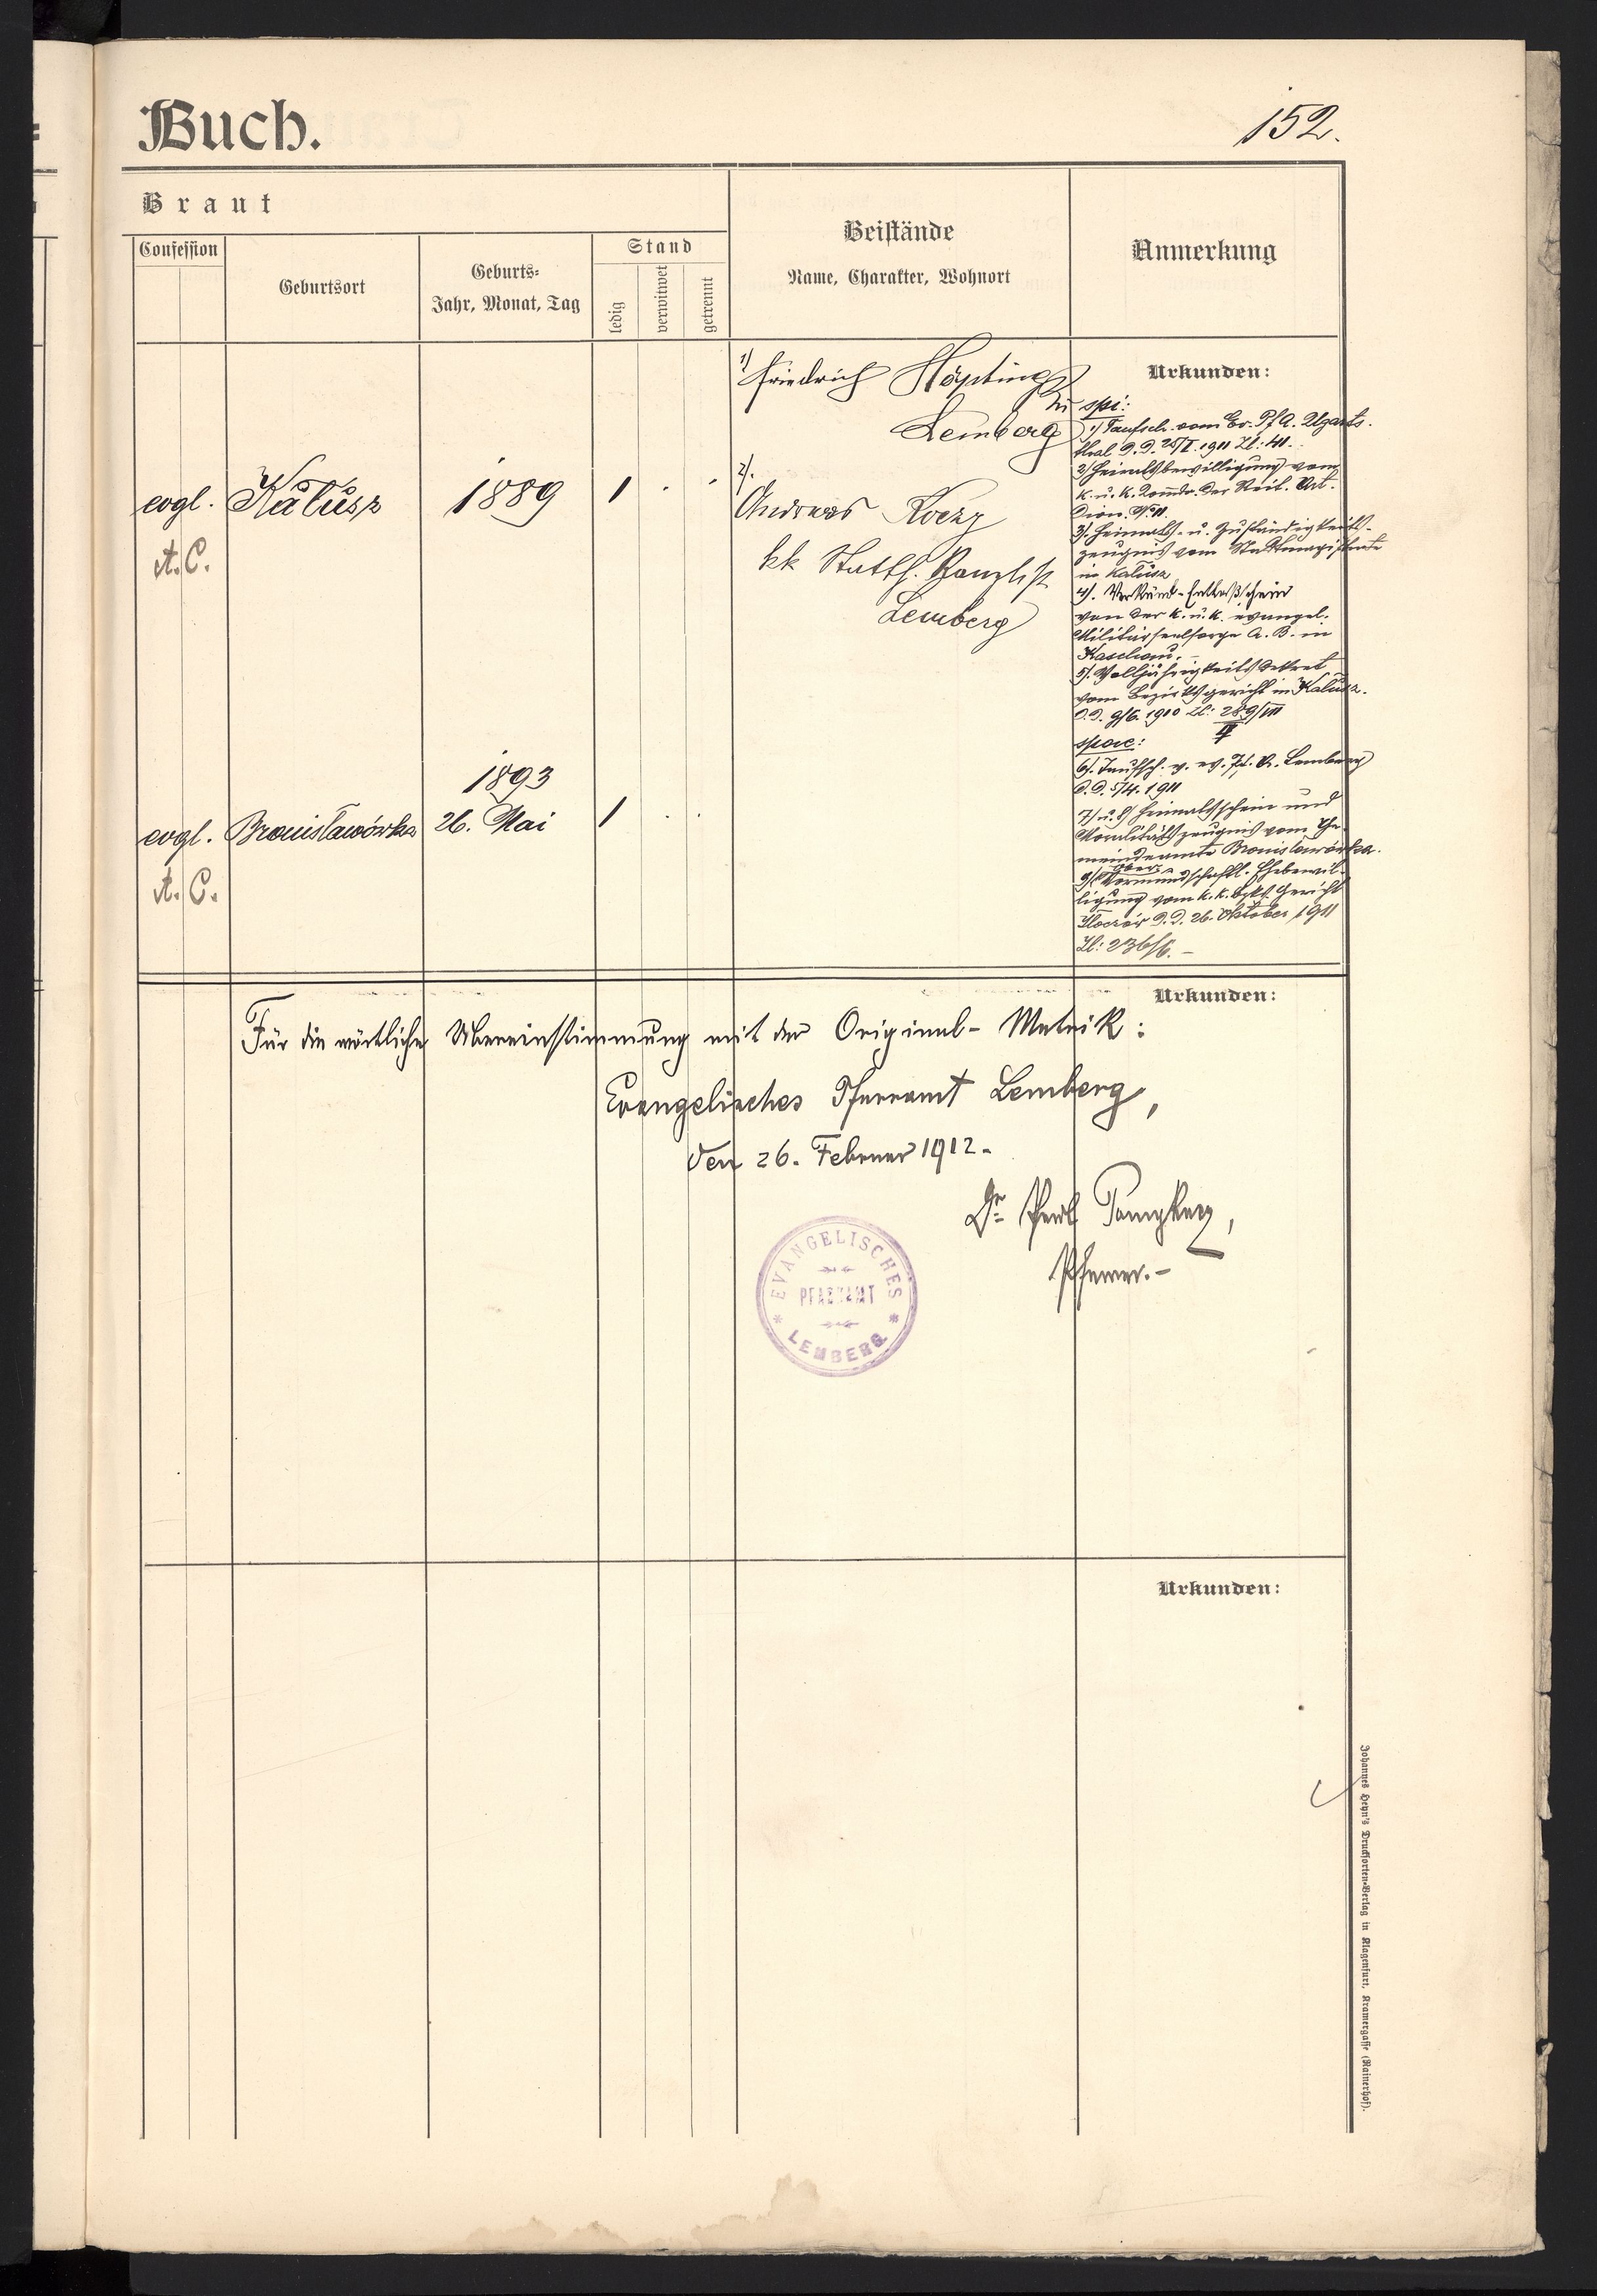 Buch.
152.
Braut
Confession
Geburtsort
Geburts-
Jahr, Monat, Tag
Stand
ledig
verwitwet
getrennt
Beistände
Name, Charakter, Wohnort
Anmerkung
evgl.
A. C.
Kałusz
1889
1
1) Friedrich Höpting
in
Lemberg
2).
Andreas Koczy
kk Statth. Kanzlist
Lemberg
Urkunden:
spi:
1) Taufsch. vom Ev. Pf. A. Ugarts-
thal d. d. 25/I. 1911 Zl: 41.
2) Heiratsbewilligung vom
k. u. k. Komdo. der Reit. Art.
Dion. No 11.
3). Heimats- u. Zuständigkeits-
zeugnis vom Stadtmagistrate
in Kałusz
4). Verkünd-Entlaßschein
von der k. u. k. evangel.
Militärseelsorge A. B. in
Kaschau. –
5). Volljährigkeitsdekret
vom Bezirksgericht in Kałusz.
d. d. 9/6. 1910 Zl: 289/VII
spae:
6). Taufsch. v. ev. Pf. A. Lemberg
d. d. 5/4. 1911
7) u. 8) Heimatsschein und
Moralitätszeugnis vom Ge-
meindeamte Bronisławówka.
9) Ober
Vormundschaftl. Ehebewil-
ligung vom k. k. Bzks. Gericht
Złoczów d. d. 26. Oktober 1911
Zl: 236/6. –
1893
evgl.
A. C.
Bronisławówka
26. Mai
1
Urkunden:
Für die wörtliche Übereinstimmung mit der Original-Matrik:
Evangelisches Pfarramt Lemberg,
den 26. Februar 1912.
Dr.
Pfarrer. –
EVANGELISCHES
PFARRAMT
LEMBERG
Urkunden:
Johannes Heyn's Drucksorten-Verlag in Klagenfurt, Kramergasse (Rainerhof).